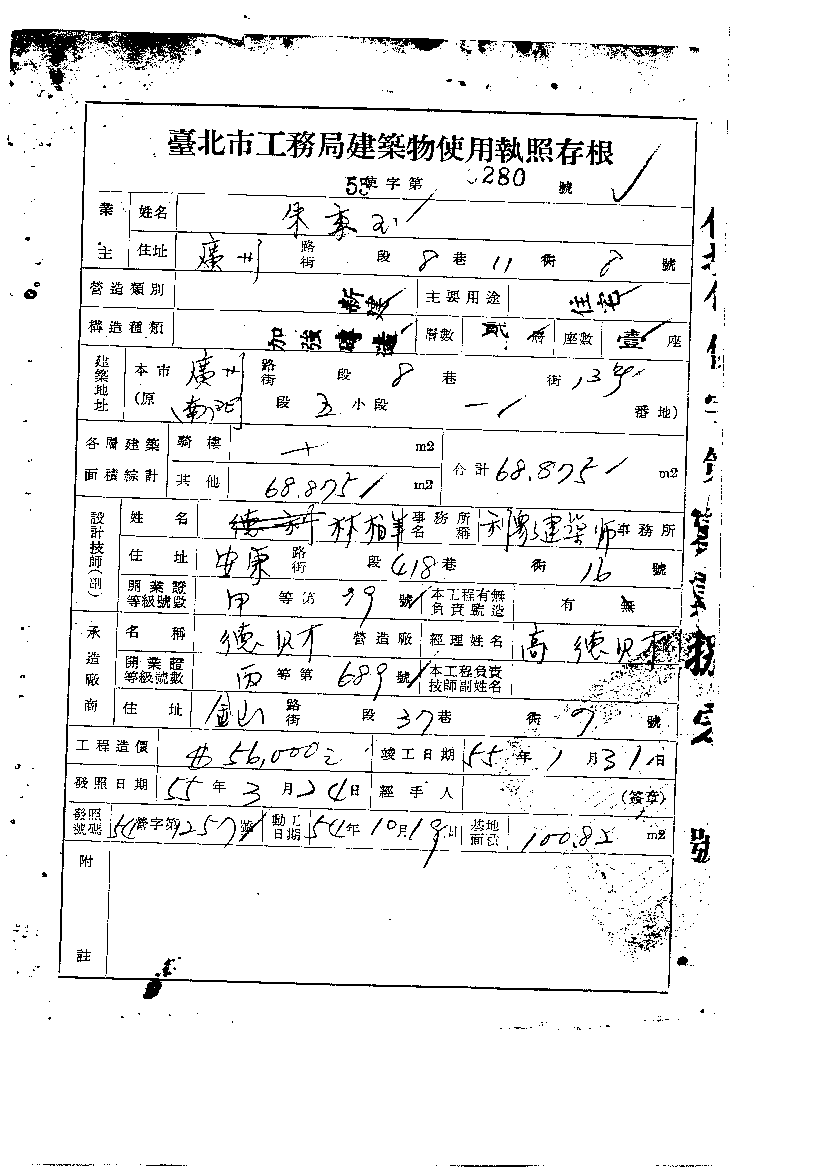 臺北市工務局建築物使用執照存根
55 字第 280 號
業主 姓名 朱
住址 廣州 路街 段 8 巷 11 衖 8 號
營造類別 新建 主要用途 住宅
構造種類 加強磚造 層數 貳 層 座數 壹 座
建築地址 本市 廣州 路街 段 8 巷 衖
(原 段 五 小段 一 番地)
各層建築面積綜計 騎樓 m2 合計 68.875 m2
其他 68.875 m2
設計技師(副) 姓名 林柏 事務所名稱 利 建築師 事務所
住址 安東 路街 段 418 巷 衖 16 號
開業證等級號數 甲 等第 99 號 本工程有無負責監造 有 無
承造廠商 名稱 德財 營造廠 經理姓名 高德財
開業證等級號數 丙 等第 689 號 本工程負責技師副姓名
住址 金山 路街 段 37 巷 衖 9 號
工程造價 56,000 竣工日期 55 年 1 月 31 日
發照日期 55 年 3 月 24 日 經手人 (簽章)
發照號碼 54 營字第 257 號 動工日期 54 年 10 月 19 日 基地面積 100.85 m2
附註